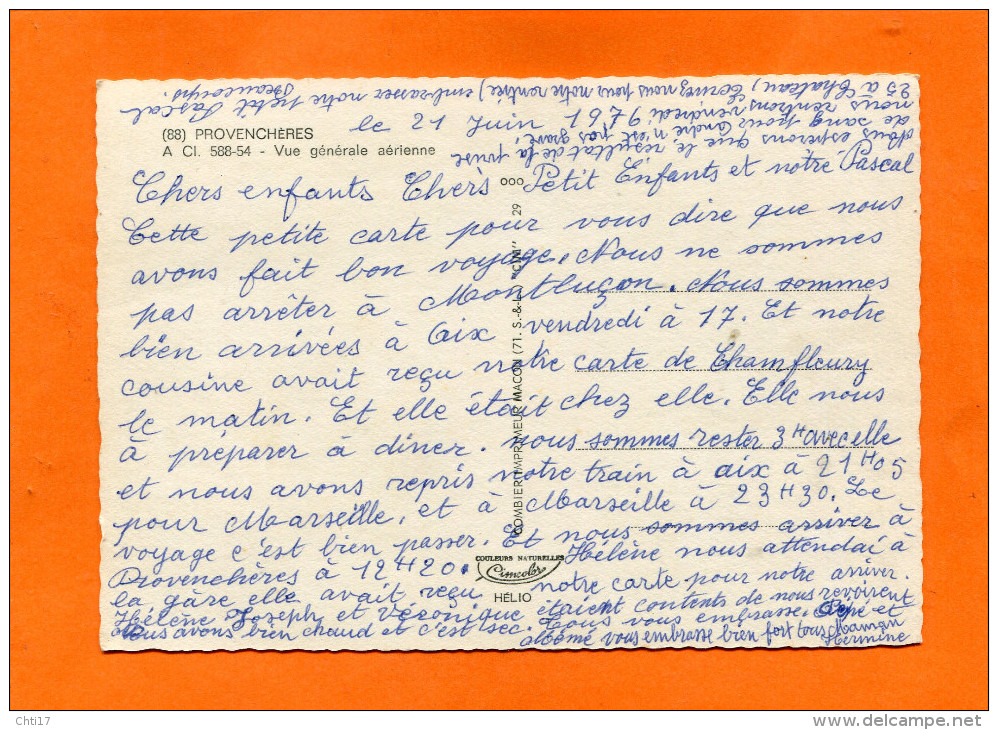 (88) PROVENCHÈRES
A CI. 588-54 - Vue générale aérienne
le 21 Juin 1979
Chers enfants Chers Petit Enfants et notre Pascal
Cette petite carte pour vous dire que nous
avons fait bon voyage. Nous ne sommes
pas arrêter à Montluçon. Nous sommes
bien arrivées à Aix vendredi à 17. Et notre
cousine avait reçu notre carte de Chamfleury
le matin. Et elle était chez elle. Elle nous
à préparer à diner. nous sommes rester 3H avec elle
et nous avons repris notre train à aix à 21H05
pour Marseille, et à Marseille à 23H30. Le
voyage c'est bien passer. Et nous sommes arriver à
Provenchères à 12H20. Hélène nous attendai à
la gâre elle avait reçu notre carte pour notre arriver.
Hélène Joseph et Véronique étaient contents de nous revoirent
Nous avons bien chaud et c'est sec. Tous vous embrasse. Pépé et
Mémé vous embrasse bien fort tous Maman
Hermine
Nous espérons que le résultat de la prise
de sang pour André n'est pas grave,
nous rentrons vendredi
25 à Chateau, notre rentrée, embrasser notre petit Pascal
Beaucoups.
ooo
COMBIER IMPRIMEUR MACON (71. S.-&-L.) "CIM" 29
COULEURS NATURELLES
Cimcolor
HÉLIO
Chti17
www.delcampe.net